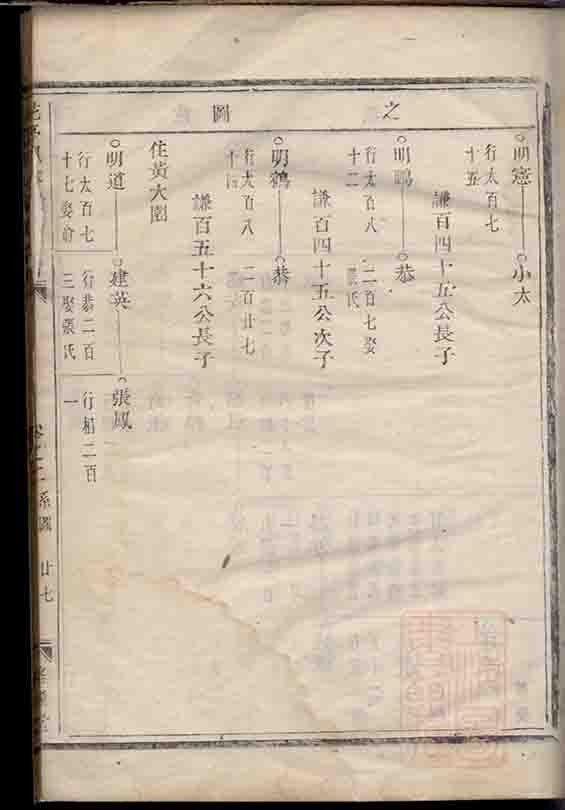 之
圖
明憲 小太
行太百七
十五
謙百四十五公長子
明鵬 恭
行太百八
十二
二百七娶
張氏
謙百四十五公次子
明鶴 恭
行太百八
二百廿七
謙百五十六公長子
住黃大園
明道 建英 張鳳
行太百七
十七娶俞
行恭二百
三娶張氏
行植二百
一
系圖
廿七
堂